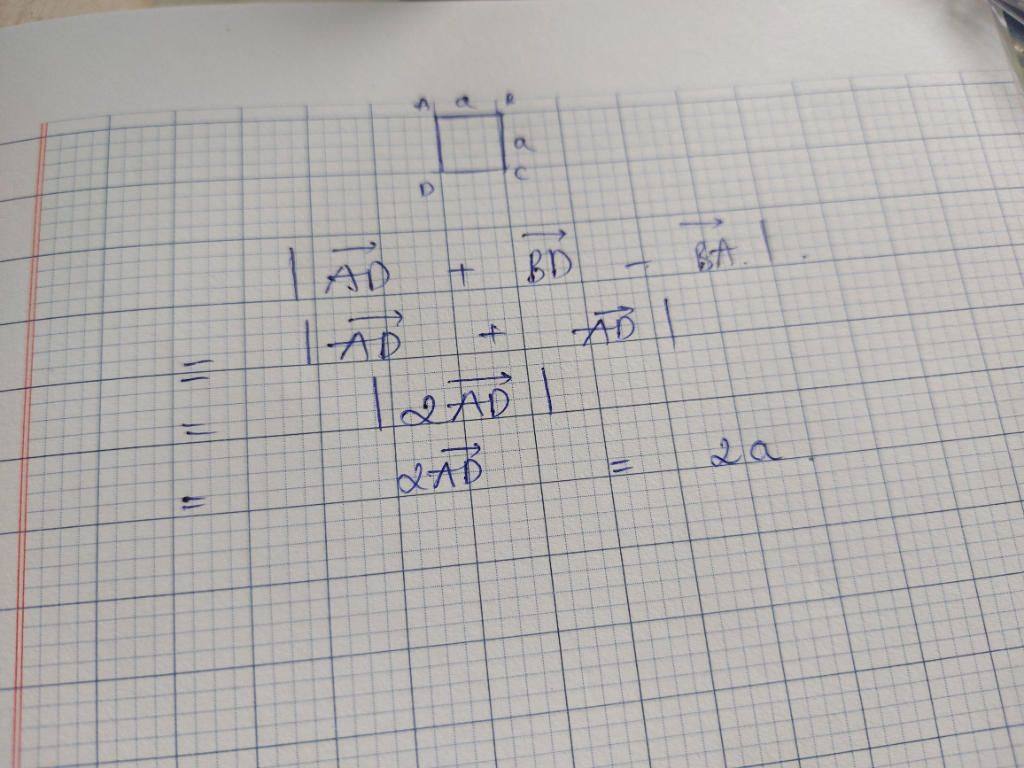 A a B
a
D C
| \overrightarrow{AD} + \overrightarrow{BD} - \overrightarrow{BA}. | .
= | \overrightarrow{AD} + \overrightarrow{AD} |
= | 2\overrightarrow{AD} |
= 2\overrightarrow{AD} = 2a.